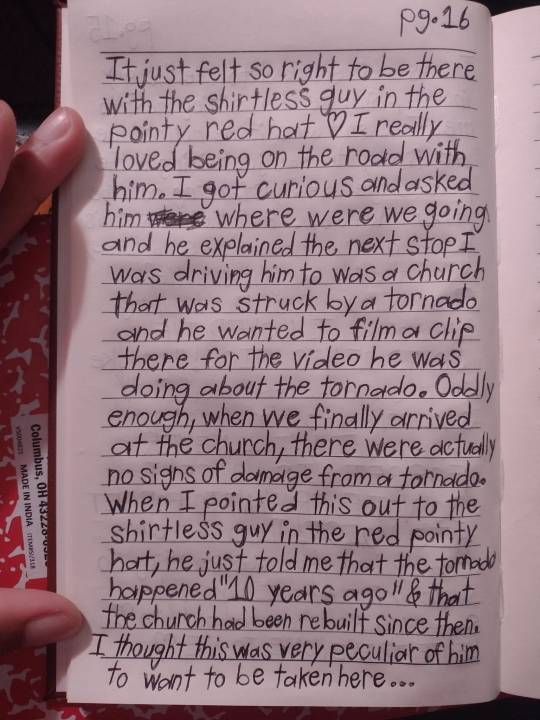 pg.16
It just felt so right to be there
with the shirtless guy in the
pointy red hat ♡ I really
loved being on the road with
him. I got curious and asked
him where were we going
and he explained the next stop I
was driving him to was a church
that was struck by a tornado
and he wanted to film a clip
there for the video he was
doing about the tornado. Oddly
enough, when we finally arrived
at the church, there were actually
no signs of damage from a tornado.
When I pointed this out to the
shirtless guy in the red pointy
hat, he just told me that the tornado
happened "10 years ago" & that
the church had been rebuilt since then.
I thought this was very peculiar of him
to want to be taken here...
Columbus, OH 43228
MADE IN INDIA